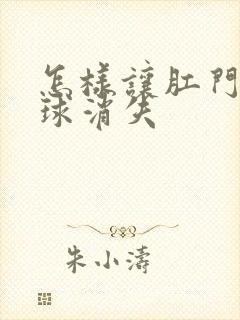 怎樣讓肛門
球消失
朱小濤